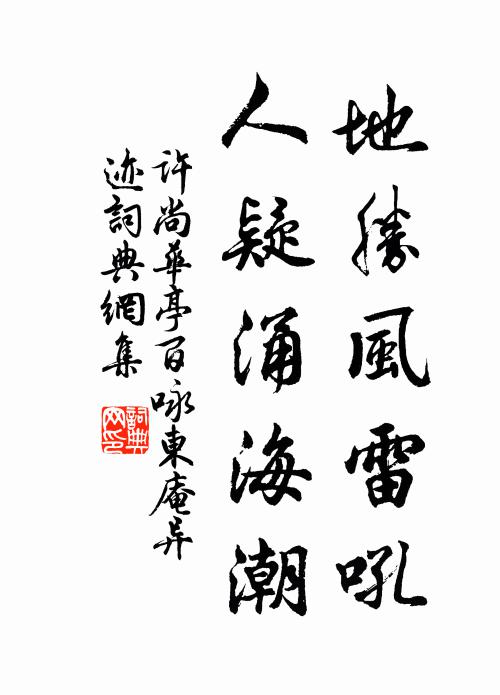 地勝風雷吼
人疑涌海潮
許尚華亭百咏東庵异
迹詞典網集
詞典网印